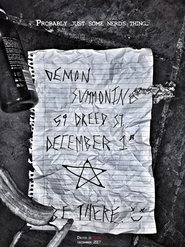 PROBABLY JUST SOME NERDS THING...
DEMON
SUMMONING
59 DREED ST.
DECEMBER 1ST
BE THERE
DECEMBER 2017